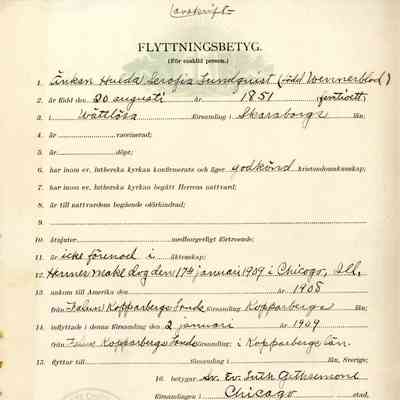 (avskrift)
FLYTTNINGSBETYG.
(För enskild person.)
1. Änkan Hulda Serafia Lundquist (född Wennerblod)
2. är född den 20 augusti år 1851 femtioett;
3. i Wättlösa församling i Skaraborgs län;
4. är vaccinerad;
5. är döpt;
6. har inom ev. lutherska kyrkan konfirmerats och äger godkänd kristendomskunskap;
7. har inom ev. lutherska kyrkan begått Herrens nattvard;
8. är till nattvardens begående oförhindrad;
9.
10. åtnjuter medborgerligt förtroende;
11. är icke förenad i äktenskap;
12. Hennes make dog den 17de januari 1909 i Chicago, Ill.
13. ankom till Amerika den år 1908
från Falun Kopparbergs församling Kopparbergs län;
14. inflyttade i denna församling den 2 januari år 1909
från Falun Kopparbergs församling; i Kopparbergs län.
15. flyttar till församling i län, Sverige;
16. betygar Sv. Ev. Luth.
församlingen i Chicago stad,